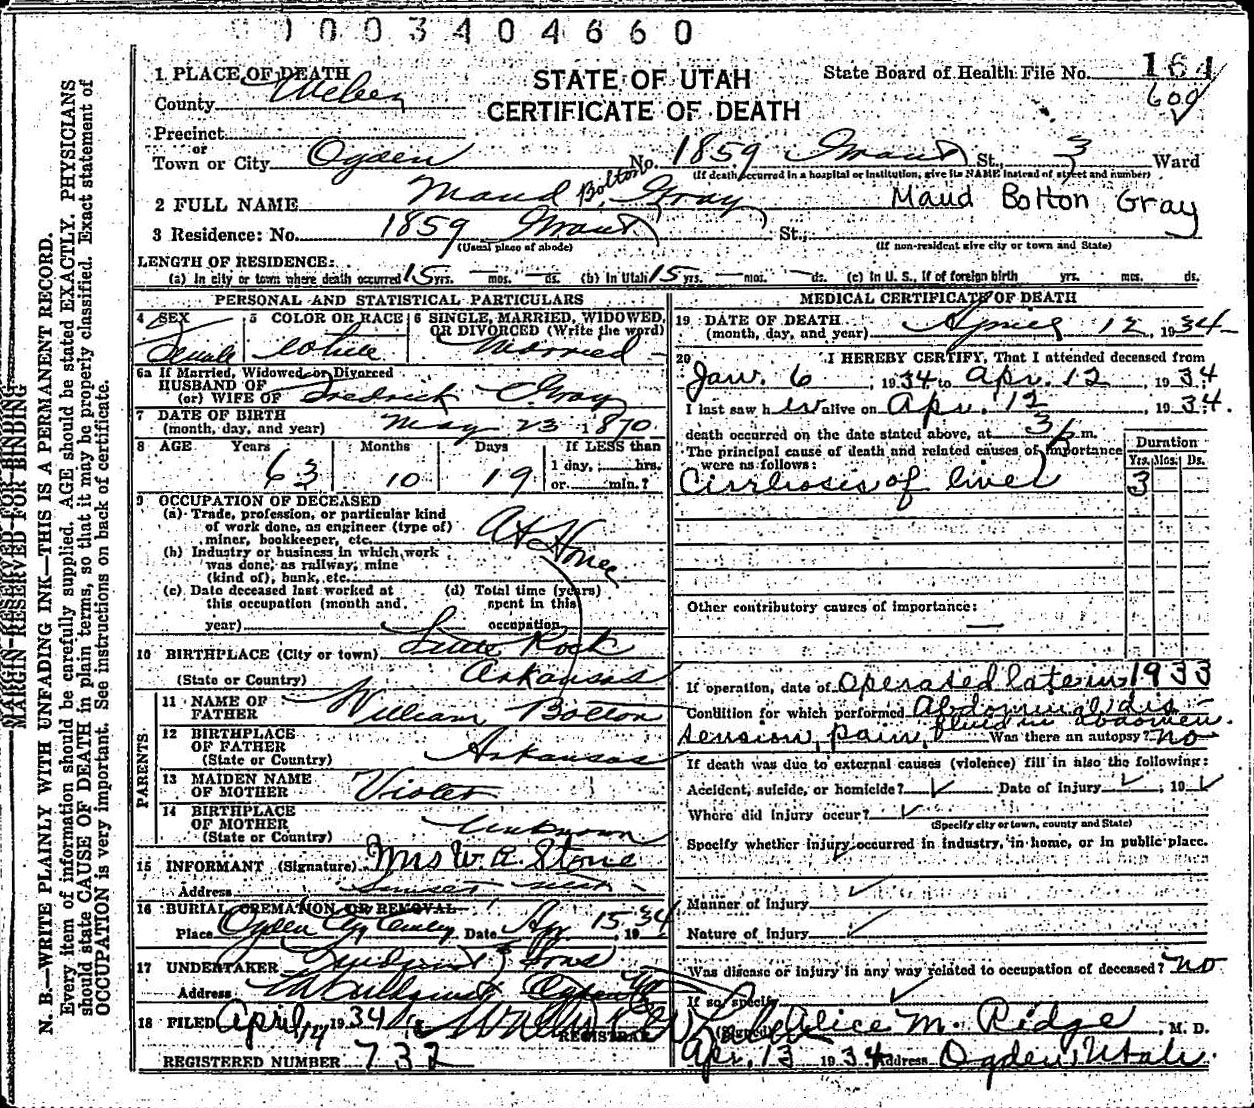 1003404660
1 PLACE OF DEATH
STATE OF UTAH
CERTIFICATE OF DEATH
State Board of Health File No. 161
609
County Weber
Precinct
or
Town or City Ogden No. 1859 Grant St., 3 Ward
(If death occurred in a hospital or institution, give its NAME instead of street and number)
2 FULL NAME Maud Bolton Gray Maud Bolton Gray
3 Residence: No. 1859 Grant St.,
(Usual place of abode) (If non-resident give city or town and State)
LENGTH OF RESIDENCE:
(a) In city or town where death occurred 15 yrs. — mos. — ds. (b) In Utah 15 yrs. — mos. — ds. (c) In U. S., if of foreign birth yrs. mos. ds.
PERSONAL AND STATISTICAL PARTICULARS
4 SEX Female
5 COLOR OR RACE White
6 SINGLE, MARRIED, WIDOWED, OR DIVORCED (Write the word) Married
6a If Married, Widowed or Divorced
HUSBAND OF
(or) WIFE OF Fredrick Gray
7 DATE OF BIRTH
(month, day, and year) May 23 1870
8 AGE Years Months Days If LESS than
63 10 19 1 day, hrs.
or min.?
9 OCCUPATION OF DECEASED
(a) Trade, profession, or particular kind
of work done, as engineer (type of)
miner, bookkeeper, etc. At Home
(b) Industry or business in which work
was done, as railway, mine
(kind of), bank, etc.
(c) Date deceased last worked at
this occupation (month and
year)
(d) Total time (years)
spent in this
occupation
10 BIRTHPLACE (City or town) Little Rock
(State or Country) Arkansas
PARENTS
11 NAME OF
FATHER William Bolton
12 BIRTHPLACE
OF FATHER
(State or Country) Arkansas
13 MAIDEN NAME
OF MOTHER Violet
14 BIRTHPLACE
OF MOTHER
(State or Country) Unknown
15 INFORMANT (Signature) Mrs W. R. Stone
Address Sunset
16 BURIAL, CREMATION OR REMOVAL
Place Ogden City Cemty Date Ap 15 1934
17 UNDERTAKER Lindquist & Sons
Address Ogden
18 FILED April 14 1934
REGISTRAR
REGISTERED NUMBER 732
MEDICAL CERTIFICATE OF DEATH
19 DATE OF DEATH
(month, day, and year) April 12, 1934
20 I HEREBY CERTIFY, That I attended deceased from
Jan. 6, 1934 to Apr. 12, 1934
I last saw h er alive on Apr. 12, 1934.
death occurred on the date stated above, at 3 p.m.
The principal cause of death and related causes of importance
were as follows:
Duration
Yrs. Mos. Ds.
Cirrhosis of liver 3
Other contributory causes of importance:
—
If operation, date of Operated late in 1933
Condition for which performed Abdominal dis-
tension, pain, fluid in abdomen. Was there an autopsy? no
If death was due to external causes (violence) fill in also the following:
Accident, suicide, or homicide? ✓ Date of injury ✓, 19 ✓
Where did injury occur? ✓
(Specify city or town, county and State)
Specify whether injury occurred in industry, in home, or in public place.
Manner of Injury ✓
Nature of Injury ✓
Was disease or injury in any way related to occupation of deceased? no
If so, specify ✓
(Signed) Alice M. Ridge, M. D.
Apr. 13 1934 Address Ogden, Utah.
MARGIN RESERVED FOR BINDING
N. B.—WRITE PLAINLY WITH UNFADING INK—THIS IS A PERMANENT RECORD.
Every item of information should be carefully supplied. AGE should be stated EXACTLY. PHYSICIANS
should state CAUSE OF DEATH in plain terms, so that it may be properly classified. Exact statement of
OCCUPATION is very important. See instructions on back of certificate.